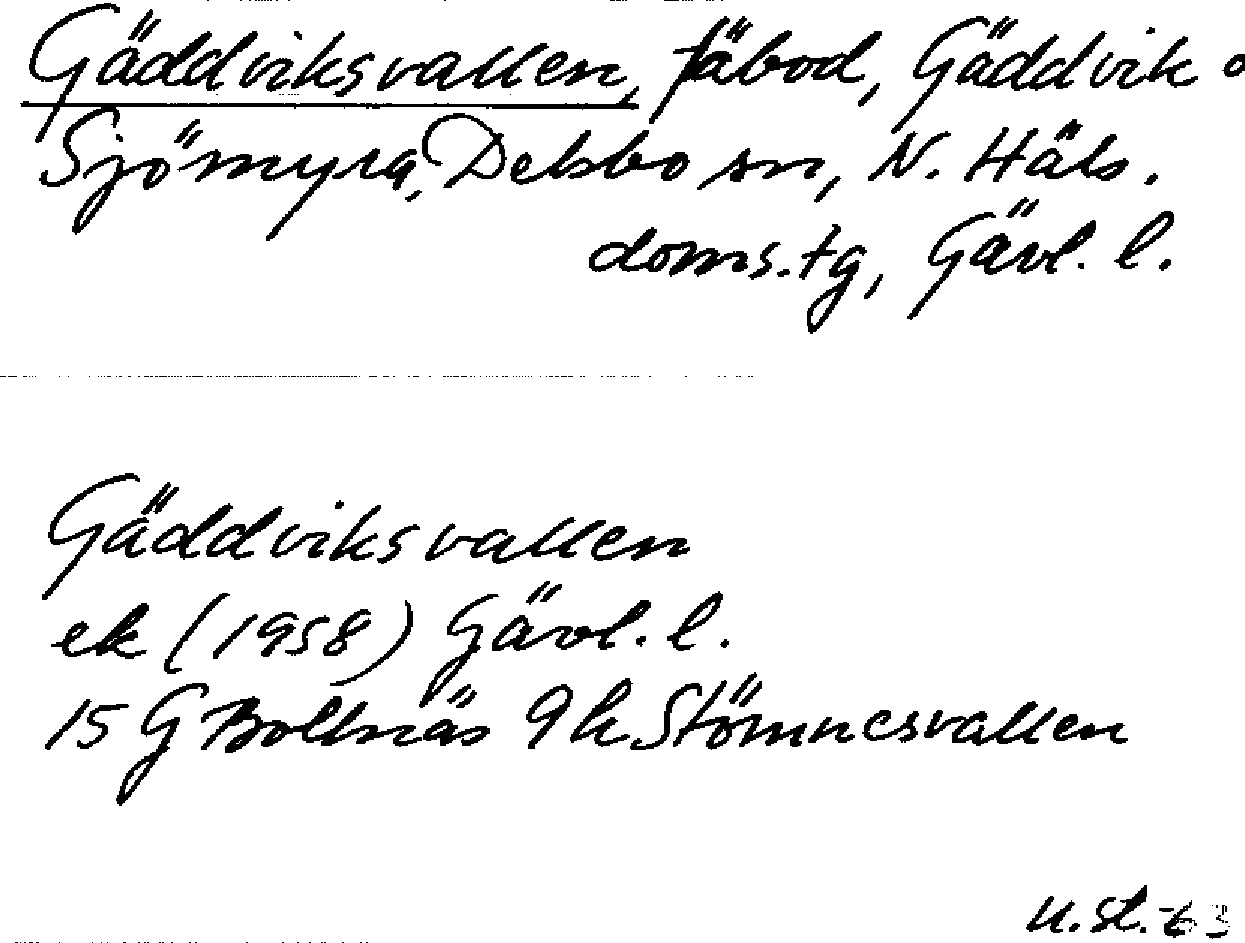 Gäddviksvallen, fäbod, Gäddvik o
Sjömyra, Delsbo sn, N. Häls.
doms.tg, Gävl. l.
Gäddviksvallen
ek (1958) Gävl. l.
15 G Bollnäs 9h Stömnesvallen
u.st.-63